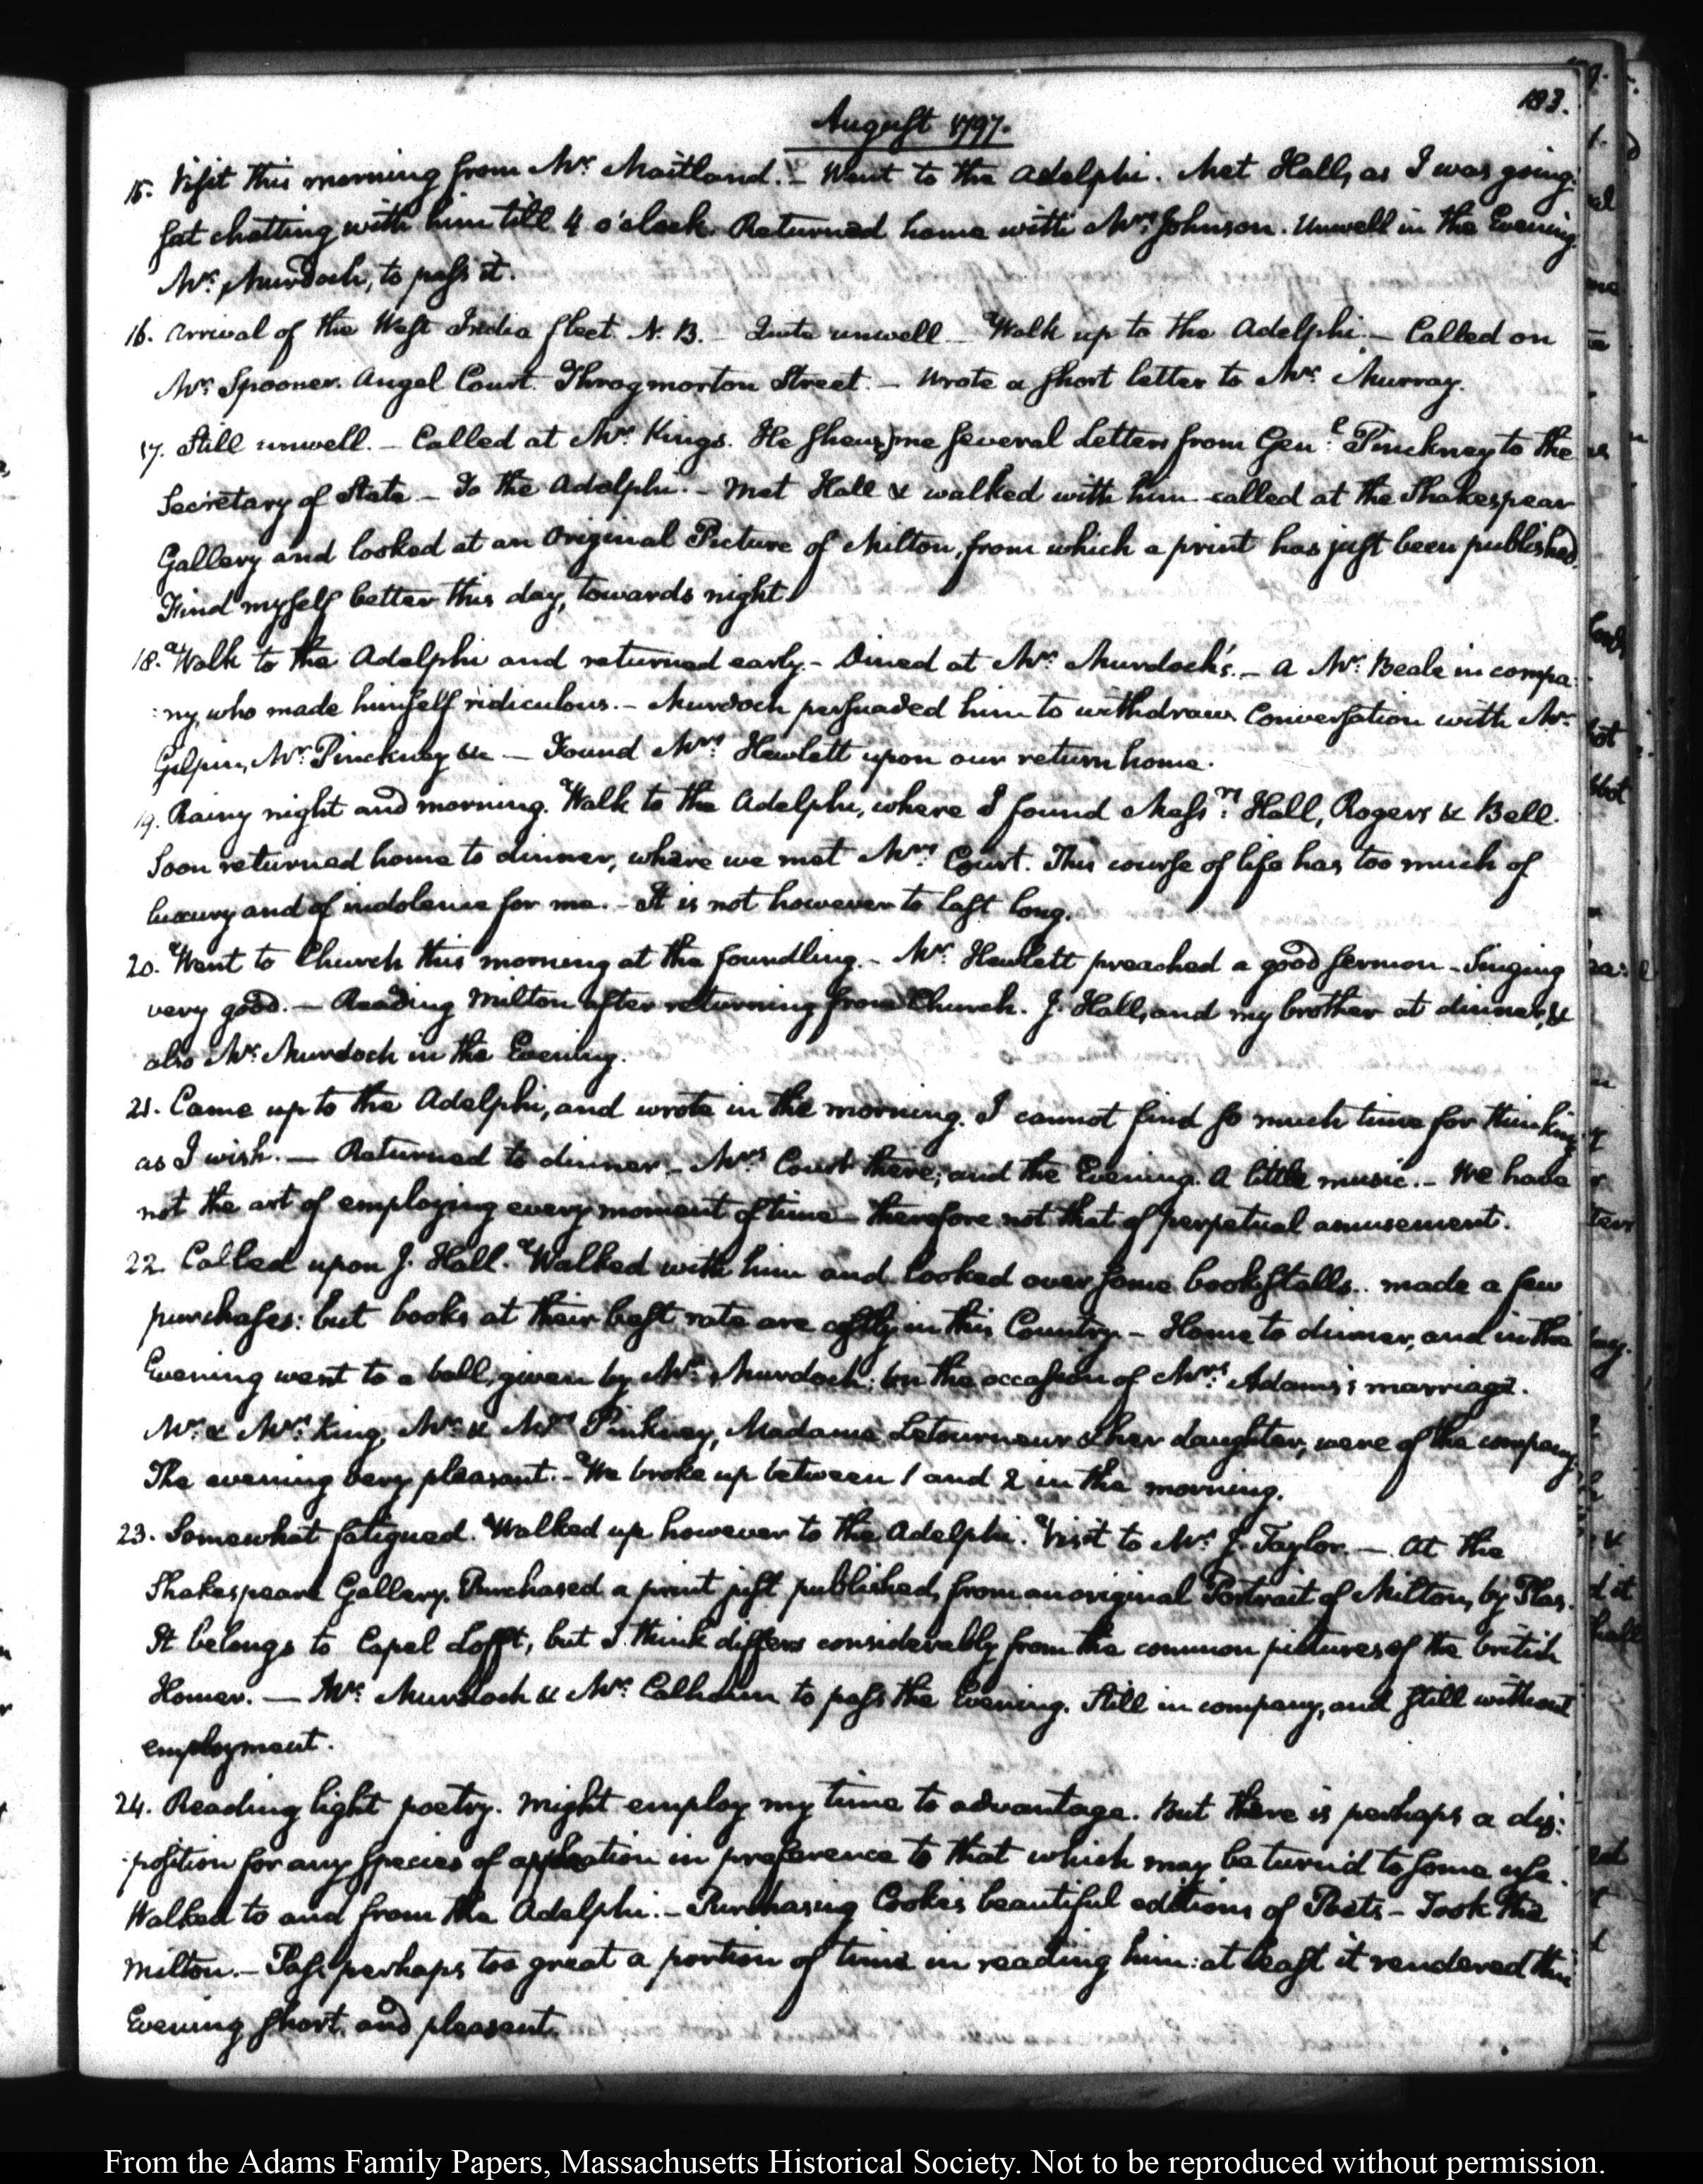 183.
August 1797.
15. Visit this morning from Mr. Maitland. – Went to the Adelphi. Met Hall, as I was going.
sat chatting with him till 4 o'clock. Returned home with Mrs. Johnson. Unwell in the Evening.
Mr. Murdoch, to pass it.
16. Arrival of the West India fleet. N. B. – Quite unwell – Walk up to the Adelphi. – Called on
Mr. Spooner. Angel Court. Throgmorton Street. – Wrote a short letter to Mr. Murray.
17. Still unwell. – Called at Mr. Kings. He shews me several Letters from Genl. Pinckney to the
Secretary of State – To the Adelphi. – Met Hall & walked with him – called at the Shakespear
Gallery and looked at an Original Picture of Milton, from which a print has just been published.
Find myself better this day, towards night.
18. Walk to the Adelphi and returned early. – Dined at Mr. Murdoch's. – A Mr. Beale in compa:
:ny, who made himself ridiculous. – Murdoch persuaded him to withdraw. Conversation with Mr.
Gilpin, Mr. Pinckney &c – Found Mrs. Hewlett upon our return home.
19. Rainy night and morning. Walk to the Adelphi, where I found Messrs. Hall, Rogers & Bell.
Soon returned home to dinner, where we met Mrs. Court. This course of life has too much of
luxury and of indolence for me. – It is not however to last long.
20. Went to Church this morning at the foundling. – Mr. Hewlett preached a good sermon – Singing
very good. – Reading Milton after returning from Church. J. Hall, and my brother at dinner, &
also Mr. Murdoch in the Evening.
21. Came up to the Adelphi, and wrote in the morning. I cannot find so much time for thinking
as I wish. – Returned to dinner – Mrs. Court there; and the Evening. A little music. – We have
not the art of employing every moment of time – therefore not that of perpetual amusement.
22. Called upon J. Hall. Walked with him and looked over some bookstalls.. made a few
purchases: but books at their best rate are costly in this Country – Home to dinner, and in the
Evening went to a ball, given by Mr. Murdoch; on the occasion of Mrs. Adams's marriage.
Mr. & Mrs. King, Mr. & Mrs. Pinkney, Madame Letourneur & her daughter, were of the company.
The evening very pleasant. – We broke up between 1 and 2 in the morning.
23. Somewhat fatigued. Walked up however to the Adelphi. Visit to Mr. J. Taylor. – At the
Shakespeare Gallery. Purchased a print just published, from an original Portrait of Milton, by Plas.
It belongs to Capel Lofft, but I think differs considerably from the common pictures of the british
Homer. – Mr. Murdoch & Mr. Calhoun to pass the Evening. Still in company, and still without
employment.
24. Reading light poetry. Might employ my time to advantage. But there is perhaps a dis:
:position for any species of application in preference to that which may be turn'd to some use.
Walked to and from the Adelphi. – Purchasing Cooke's beautiful editions of Poets – Took the
Milton. – Pass perhaps too great a portion of time in reading him: at least it rendered this
Evening short and pleasant.
From the Adams Family Papers, Massachusetts Historical Society. Not to be reproduced without permission.